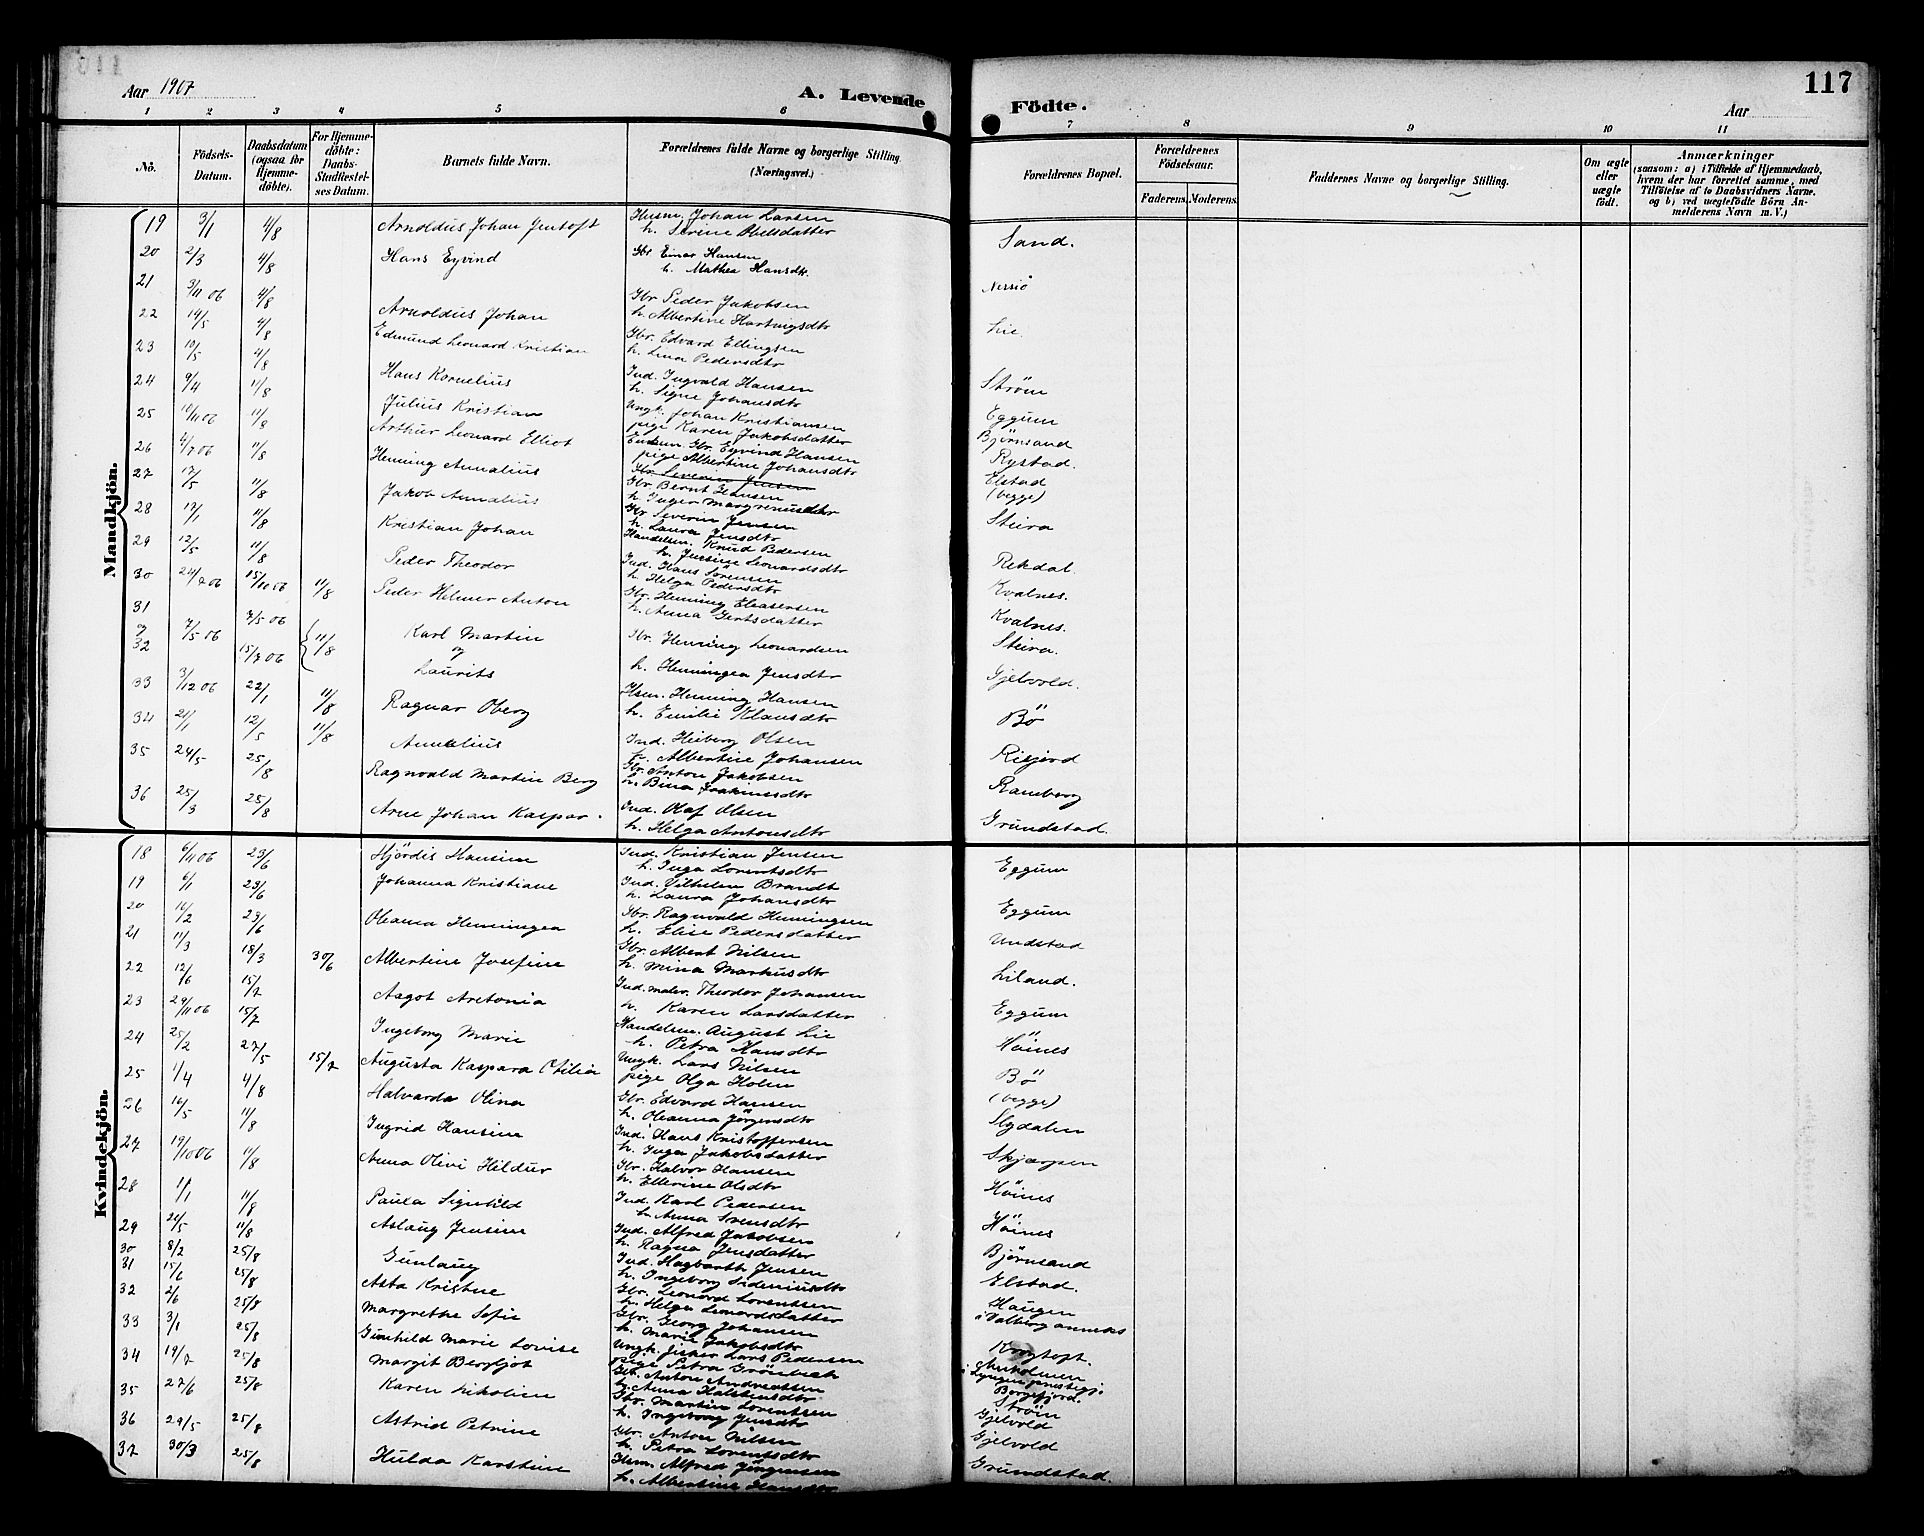 117
Aar 1907
A. Levende
Födte.
Aar
1 2 3 4 5 6 7 8 9 10 11
No.
Födsels-Datum.
Daabsdatum (ogsaa for Hjemme-döbte).
For Hjemme-döbte: Daabs-Stadfæstel-ses Datum.
Barnets fulde Navn.
Forældrenes fulde Navne og borgerlige Stilling. (Næringsvei.)
Forældrenes Bopæl.
Forældrenes Födselsaar.
Faderens. Moderens.
Faddernes Navne og borgerlige Stilling.
Om ægte eller uægte födt.
Anmærkninger
(saasom: a) i Tilfælde af Hjemmedaab, hvem der har forrettet samme, med Tilföielse af to Daabsvidners Navne. og b) ved uægtefödte Börn Anmelderens Navn m. V.)
Mandkjön.
19 3/1 4/8 Arnoldus Johan Jentoft Husm. Johan Larsen
h. Serine Abelsdatter Sand.
20 2/3 4/8 Hans Eyvind Gbr Einar Hansen
h. Mathea Hansdtr. Nersiø
21 3/11 06 4/8 Arnoldus Johan Gbr Peder Jakobsen
h. Albertine Hartvigsdtr Lie.
22 14/5 4/8 Edmund Leonard Kristian Gbr. Edvard Ellingsen
h. Lina Pedersdtr Ström
23 10/5 4/8 Hans Kornelius Ind. Ingvald Hansen
h. Signe Johansdtr Eggum
24 9/4 11/8 Julius Kristian Ungk. Johan Kristiansen
pige Karen Jakobsdatter Björnsand
Rystad.
25 10/11 06 11/8 Arthur Leonard Elliot Enkem. Gbr. Eyvind Hansen
pige Albertine Johansdtr Elstad
(begge)
Gbr. Severin Jensen
26 4/7 06 11/8 Henning Annalius Gbr. Bernt Hansen
h. Inger Margrenusdtr Steira
27 17/5 11/8 Jakob Annalius Gbr Severin Jensen
h. Laura Jensdtr Rekdal.
28 17/1 11/8 Kristian Johan Handelsm. Knud Pedersen
h. Jensine Leonardsdtr Kvalnes.
29 12/5 11/8 Peder Theodor Ind. Hans Sörensen
h. Helga Pedersdtr Kvalnes.
30 24/9 06 15/10 06 11/8 Peder Helmer Anton Gbr. Henning Eleasersen
h. Anna Gertsdatter Steira.
31 7/5 06 7/5 06 11/8 Karl Martin Gbr. Henning Leonardsen
og 32 15/7 06 og Laurits h. Henningea Jensdtr Gjelvold.
33 3/12 06 22/1 11/8 Ragnar Oberg Hsm. Henning Hansen
h. Emilie Klausdtr Bö
34 21/1 12/5 11/8 Annelius Ind. Heiberg Olsen
h. Albertine Johansen Risjord
35 24/5 25/8 Ragnvald Martin Berg Gbr. Anton Jakobsen
h. Bina Joakimsdtr Ramberg
36 25/3 25/8 Arne Johan Kaspar. Ind. Olaf Olsen
h. Helga Antonsdtr Grundstad.
Kvindekjön.
18 6/11 06 23/6 Hjördis Hansine Ind. Kristian Jensen
h. Inga Lorentsdtr Eggum
19 6/1 23/6 Johanna Kristiane Ind. Vilhelm Brandt
h. Laura Johansdtr Eggum
20 10/2 23/6 Oleanna Henningea Gbr. Ragnvald Henningsen
h. Elise Pedersdatter Undstad
21 11/3 18/3 30/6 Albertine Josefine Gbr. Albert Nilsen
h. Mina Markusdtr Liland.
22 12/6 15/7 Aagot Aretonia Ind. maler. Theodor Johansen
h. Karen Larsdatter Eggum
23 29/11 06 15/7 Ingeborg Marie Handelsm. August Lie
h. Petra Hansdtr Höines
24 25/2 27/5 15/7 Augusta Kaspara Otilia Ungk. Lars Nilsen
pige Olga Holm Bö
(begge)
25 1/4 4/8 Halvarda Olina Gbr. Edvard Hansen
h. Oleanna Jörgensdtr Slydalen
26 16/5 11/8 Ingrid Hansine Ind. Hans Kristoffersen
h. Inga Jakobsdatter Skjærpen
27 19/10 06 11/8 Anna Olivi Hildur Gbr. Halvor Hansen
h. Ellerine Olsdtr Höines
28 1/1 11/8 Paula Signhild Ind. Karl Pedersen
h. Anna Svensdtr Höines
29 21/5 11/8 Aslaug Jensine Ind. Alfred Jakobsen
h. Ragna Jensdatter Björnsand
30 8/2 25/8 Gunlaug Ind. Hagbarth Jensen
h. Ingeborg Sideniusdtr Elstad.
31 15/6 25/8 Asta Kristine Gbr. Leonard Lorentsen
h. Helga Leonardsdatter Haugen
i Valberg anneks
32 2/6 25/8 Margrethe Sofie Gbr. Georg Johansen
h. Marie Jakobsdtr Krogtoft.
33 3/1 25/8 Gunhild Marie Lovise Ungk. Fisker Lars Pedersen
pige Petra Grönbeck
i Lyngen prestegj.
Borgefjord.
34 19/7 25/8 Margit Bergljot Gbr. Anton Andreassen
h. Anna Halstensdtr Ström
35 27/6 25/8 Karen Nikoline Gbr. Martin Lorentsen
h. Ingeborg Jensdtr Gjelvold
36 29/5 25/8 Astrid Petrine Gbr. Anton Nilsen
h. Petra Lorentsdtr Gjelvold
37 30/3 25/8 Hulda Karstine Hsm. Alfred Jörgensen
h. Albertine Hansdtr Grundstad.